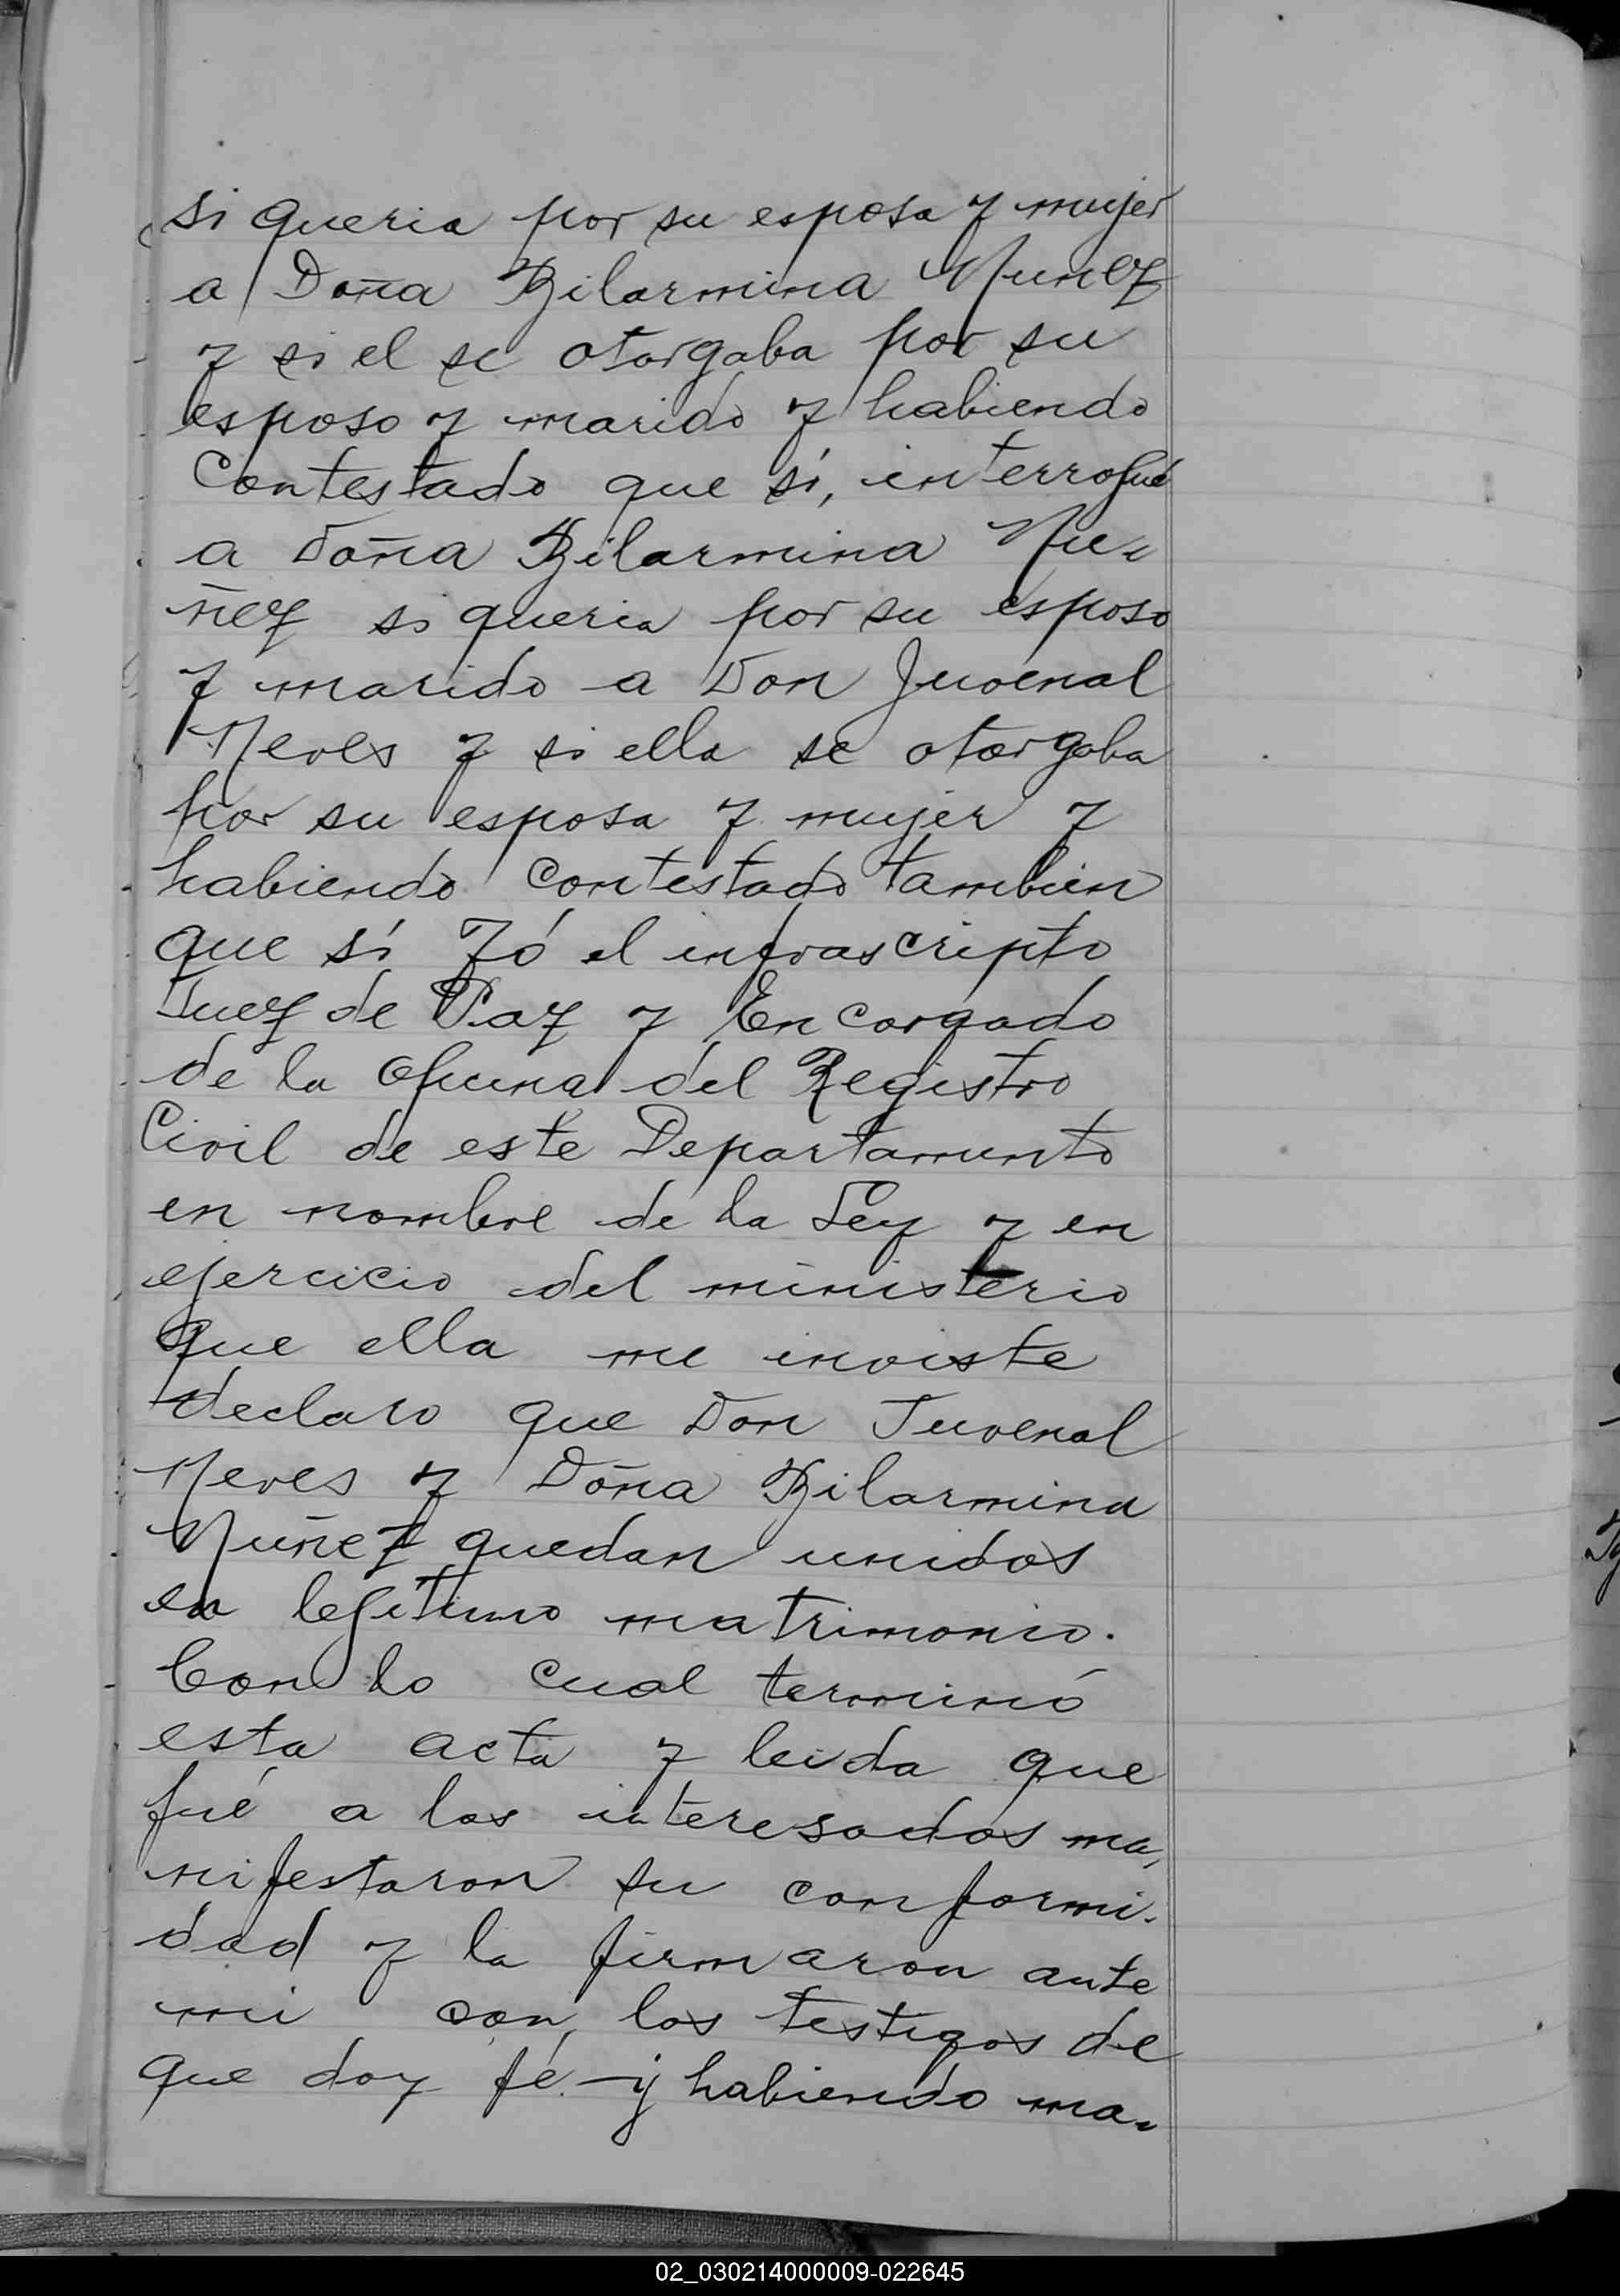 si queria por su esposa y mujer
a Doña Bilarmina Nuñez
y si el se otorgaba por su
esposo y marido y habiendo
contestado que sí, interrogué
a Doña Bilarmina Nu-
ñez si queria por su esposo
y marido a Don Juvenal
Neves y si ella se otorgaba
por su esposa y mujer y
habiendo contestado tambien
que sí Yó el infrascripto
Juez de Paz y Encargado
de la oficina del Registro
Civil de este Departamento
en nombre de la Ley y en
ejercicio del ministerio
que ella me inviste
declaro que Don Juvenal
Neves y Doña Bilarmina
Nuñez quedan unidos
en lefitimo matrimonio.
Con lo cual terminó
esta acta y leida que
fué a los interesados ma-
nifestaron su conformi-
dad y la firmaron ante
mi con los testigos de
que doy fé. y habiendo ma-
02_030214000009-022645